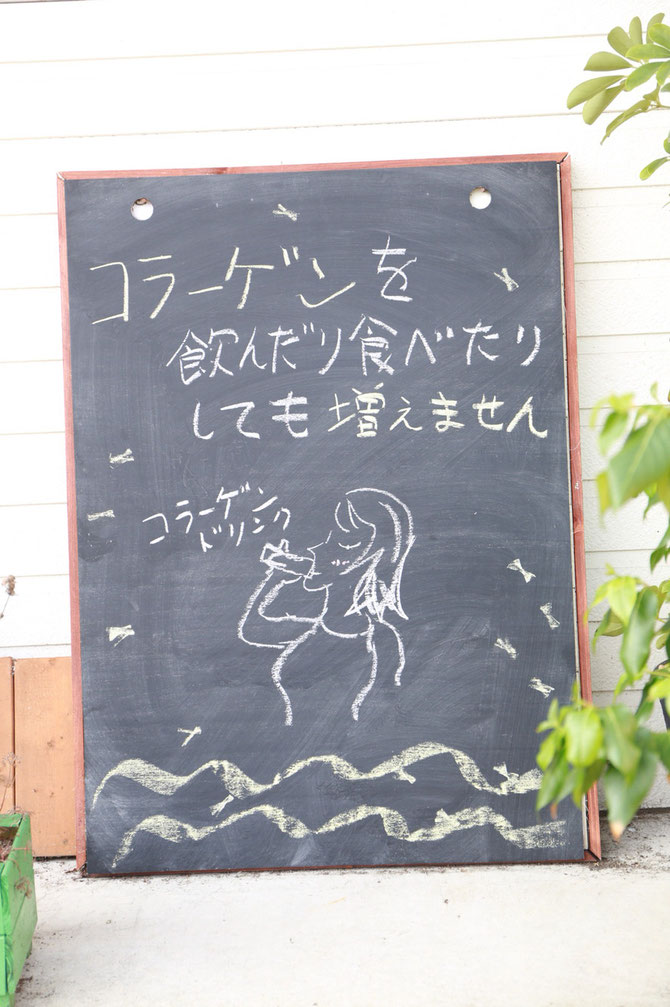 コラーゲンを
飲んだり食べたり
しても増えません
コラーゲン
ドリンク